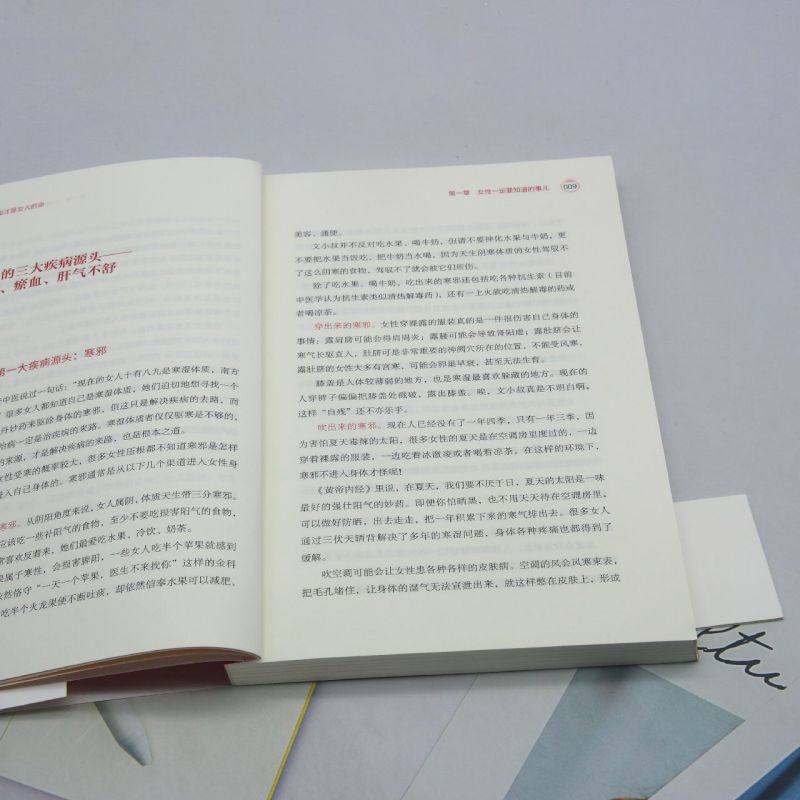 的三大疾病源头——
、瘀血、肝气不舒
第一大疾病源头：寒邪
中医说过一句话：“现在的女人十有八九是寒湿体质，南方
很多女人都知道自己是寒湿体质，她们迫切地想寻找一个
开妙药来驱除身体的寒邪，但这只是解决疾病的去路，而
治病一定是治疾病的来路。寒湿体质者仅仅驱寒是不够的，
的来源，才是解决疾病的来路，也是根本之道。
女性受寒的概率较大，很多女性压根都不知道寒邪是怎样
进入自己身体的。寒邪通常是从以下几个渠道进入女性身
寒邪。从阴阳角度来说，女人属阴，体质天生带三分寒邪。
应该吃一些补阳气的食物，至少不要吃损害阳气的食物，
喜欢反着来，她们最爱吃水果、冷饮、奶茶。
果属于寒性，会损害脾阳，一些女人吃半个苹果就感到
依然恪守“一天一个苹果，医生不来找你”这样的金科
吃半个火龙果便不断吐痰，却依然信奉水果可以减肥、
第一章 女性一定要知道的事儿 009
美容、通便。
文小叔并不反对吃水果、喝牛奶，但请不要神化水果与牛奶，更
不要把水果当饭吃，把牛奶当水喝，因为天生阴寒体质的女性驾驭不
了这么阴寒的食物，驾驭不了就会被它们所伤。
除了吃水果、喝牛奶，吃出来的寒邪还包括吃各种抗生素（目前
中医学认为抗生素类似清热解毒药），还有一上火就吃清热解毒的药或
者喝凉茶。
穿出来的寒邪。女性穿裸露的服装真的是一件很伤害自己身体的
事情：露肩膀可能会得肩周炎；露腰可能会导致肾阳虚；露肚脐会让
寒气长驱直入，肚脐可是非常重要的神阙穴所在的位置，不能受风寒，
露肚脐的女性大多有宫寒，可能会卵巢早衰，甚至无法生育。
膝盖是人体较薄弱的地方，也是寒湿最喜欢躲藏的地方。现在的
人穿裤子偏偏把膝盖处戳破，露出膝盖。唉，文小叔真是不明白啊，
这样“自残”还不亦乐乎。
吹出来的寒邪。现在人已经没有了一年四季，只有一年三季，因
为害怕夏天毒辣的太阳，很多女性的夏天是在空调房里度过的，一边
穿着裸露的服装，一边吃着冰激凌或者喝着凉茶。在这样的环境下，
寒邪不进入身体才怪呢！
《黄帝内经》里说，在夏天，我们要不厌于日，夏天的太阳是一味
最好的强壮阳气的妙药。即便你怕晒黑，也不用天天待在空调房里，
可以做好防晒，出去走走，把一年积累下来的寒气排出去。很多女人
通过三伏天晒背解决了多年的寒湿问题，身体各种疼痛也都得到了
缓解。
吹空调可能会让女性患各种各样的皮肤病。空调的风会风寒束表，
把毛孔堵住，让身体的湿气无法宣泄出来，就这样憋在皮肤上，形成